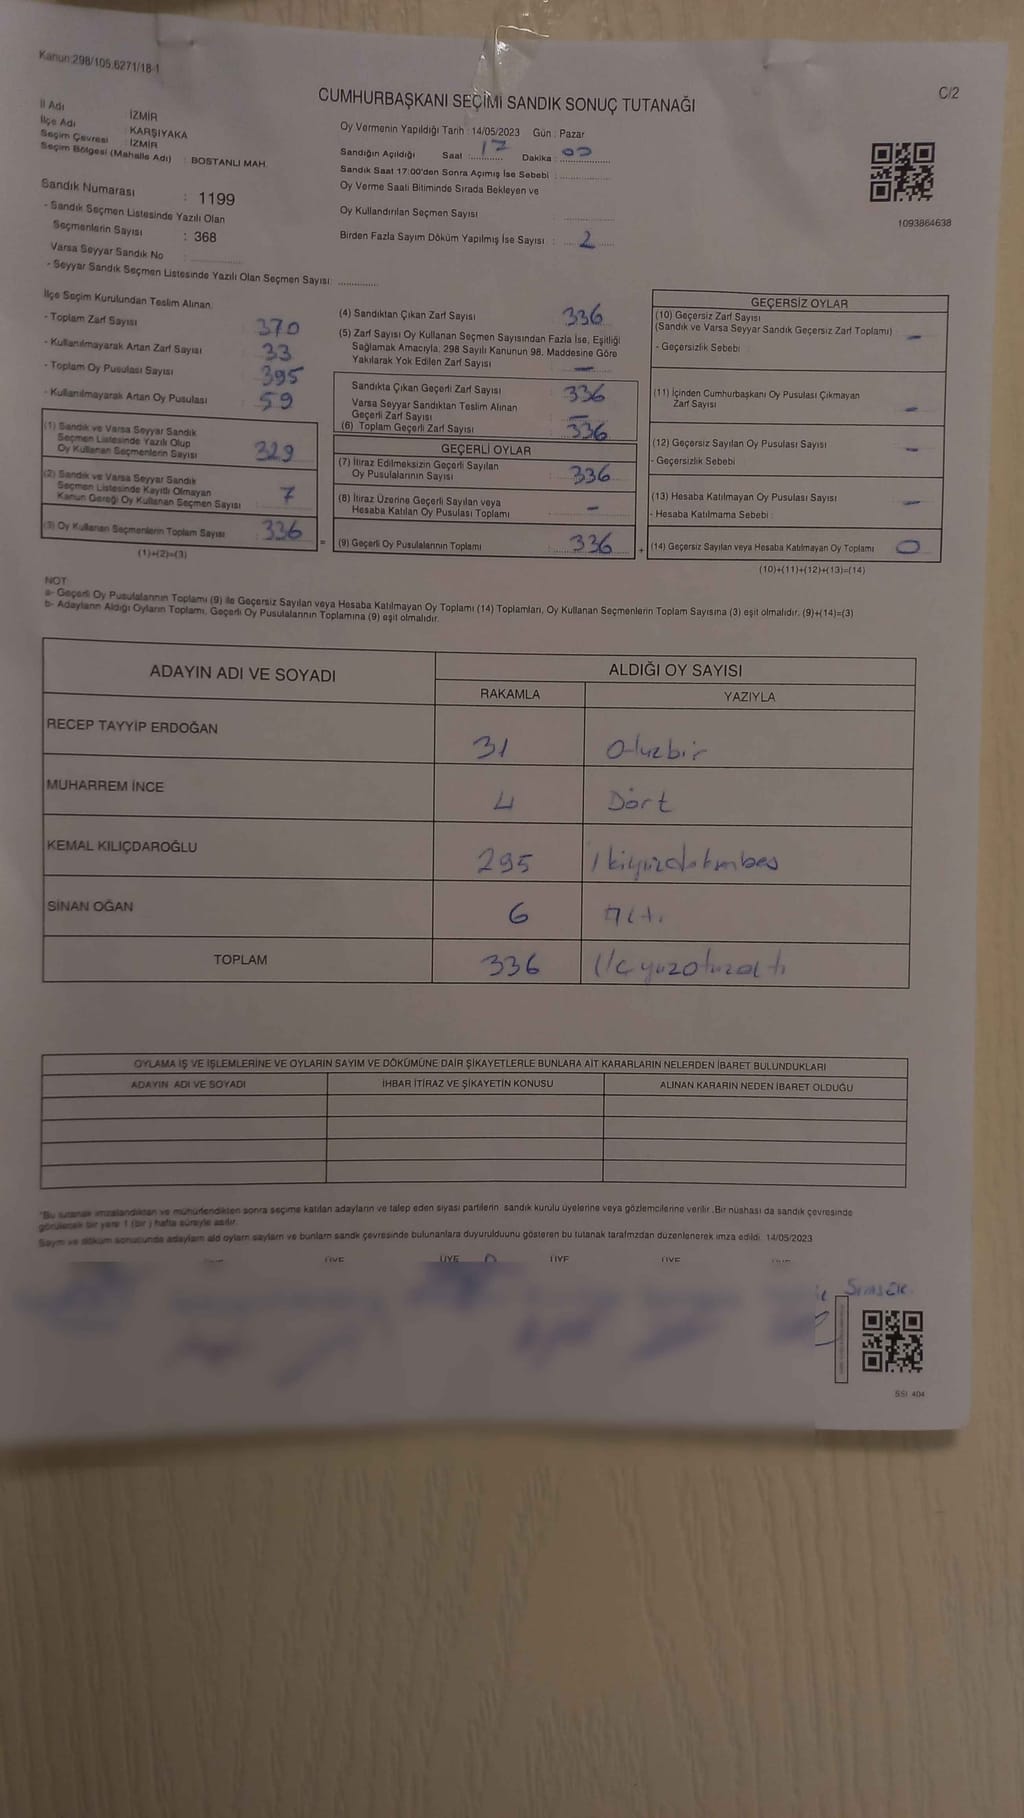 Kanun:298/105.6271/18-1
C/2
CUMHURBAŞKANI SEÇİMİ SANDIK SONUÇ TUTANAĞI
İl Adı : İZMİR
İlçe Adı : KARŞIYAKA
Seçim Çevresi : İZMİR
Seçim Bölgesi (Mahalle Adı) : BOSTANLI MAH.
Sandık Numarası : 1199
- Sandık Seçmen Listesinde Yazılı Olan
Seçmenlerin Sayısı : 368
Varsa Seyyar Sandık No : ............
- Seyyar Sandık Seçmen Listesinde Yazılı Olan Seçmen Sayısı: ............
Oy Vermenin Yapıldığı Tarih : 14/05/2023 Gün : Pazar
Sandığın Açıldığı Saat : 17 Dakika : 00
Sandık Saat 17:00'den Sonra Açımış İse Sebebi : ............
Oy Verme Saali Bitiminde Sırada Bekleyen ve
Oy Kullandırılan Seçmen Sayısı ............
Birden Fazla Sayım Döküm Yapılmış İse Sayısı : 2
1093864638
İlçe Seçim Kurulundan Teslim Alınan:
- Toplam Zarf Sayısı : 370
- Kullanılmayarak Artan Zarf Sayısı : 33
- Toplam Oy Pusulası Sayısı : 395
- Kullanılmayarak Artan Oy Pusulası : 59
(1) Sandık ve Varsa Seyyar Sandık
Seçmen Listesinde Yazılı Olup
Oy Kullanan Seçmenlerin Sayısı : 329
(2) Sandık ve Varsa Seyyar Sandık
Seçmen Listesinde Kayıtlı Olmayan
Kanun Gereği Oy Kullanan Seçmen Sayısı : 7
(3) Oy Kullanan Seçmenlerin Toplam Sayısı : 336
(1)+(2)=(3)
=
(4) Sandıktan Çıkan Zarf Sayısı : 336
(5) Zarf Sayısı Oy Kullanan Seçmen Sayısından Fazla İse, Eşitliği
Sağlamak Amacıyla, 298 Sayılı Kanunun 98. Maddesine Göre
Yakılarak Yok Edilen Zarf Sayısı : —
Sandıkta Çıkan Geçerli Zarf Sayısı : 336
Varsa Seyyar Sandıktan Teslim Alınan
Geçerli Zarf Sayısı : —
(6) Toplam Geçerli Zarf Sayısı : 336
GEÇERLİ OYLAR
(7) İtiraz Edilmeksizin Geçerli Sayılan
Oy Pusulalarının Sayısı : 336
(8) İtiraz Üzerine Geçerli Sayılan veya
Hesaba Katılan Oy Pusulası Toplamı : —
(9) Geçerli Oy Pusulalarının Toplamı : 336
+
GEÇERSİZ OYLAR
(10) Geçersiz Zarf Sayısı
(Sandık ve Varsa Seyyar Sandık Geçersiz Zarf Toplamı) —
- Geçersizlik Sebebi :
(11) İçinden Cumhurbaşkanı Oy Pusulası Çıkmayan
Zarf Sayısı —
(12) Geçersiz Sayılan Oy Pusulası Sayısı —
- Geçersizlik Sebebi
(13) Hesaba Katılmayan Oy Pusulası Sayısı —
- Hesaba Katılmama Sebebi :
(14) Geçersiz Sayılan veya Hesaba Katılmayan Oy Toplamı 0
(10)+(11)+(12)+(13)=(14)
NOT:
a- Geçerli Oy Pusulalarının Toplamı (9) ile Geçersiz Sayılan veya Hesaba Katılmayan Oy Toplamı (14) Toplamları, Oy Kullanan Seçmenlerin Toplam Sayısına (3) eşit olmalıdır. (9)+(14)=(3)
b- Adayların Aldığı Oyların Toplamı, Geçerli Oy Pusulalarının Toplamına (9) eşit olmalıdır.
ADAYIN ADI VE SOYADI
ALDIĞI OY SAYISI
RAKAMLA YAZIYLA
RECEP TAYYİP ERDOĞAN 31 Otuzbir
MUHARREM İNCE 4 Dört
KEMAL KILIÇDAROĞLU 295 İkiyüzdoksanbeş
SİNAN OĞAN 6 Altı
TOPLAM 336 Üçyüzotuzaltı
OYLAMA İŞ VE İŞLEMLERİNE VE OYLARIN SAYIM VE DÖKÜMÜNE DAİR ŞİKAYETLERLE BUNLARA AİT KARARLARIN NELERDEN İBARET BULUNDUKLARI
ADAYIN ADI VE SOYADI İHBAR İTİRAZ VE ŞİKAYETİN KONUSU ALINAN KARARIN NEDEN İBARET OLDUĞU
*Bu tutanak imzalandıktan ve mühürlendikten sonra seçime katılan adayların ve talep eden siyasi partilerin sandık kurulu üyelerine veya gözlemcilerine verilir. Bir nüshası da sandık çevresinde
görülecek bir yere 1 (bir ) hafta süreyle asılır.
Sayım ve döküm sonucunda adayların ald oyların sayların ve bunların sandk çevresinde bulunanlara duyurulduunu gösteren bu tutanak tarafmzdan düzenlenerek imza edildi. 14/05/2023
ÜYE ÜYE ÜYE ÜYE
Şimşek
SSI 404